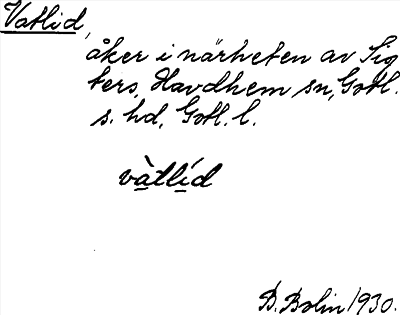 Vatlid,
åker i närheten av Sig
ters, Havdhem sn, Gotl.
s. hd, Gotl. l.
vàtlíd
D. Bolin 1930.